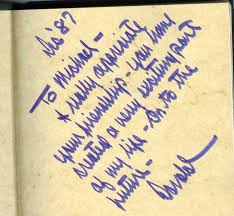 To Michael –
I really appreciate
your friendship – you have
created a very exciting part
of my life – On to the
future –
Donald